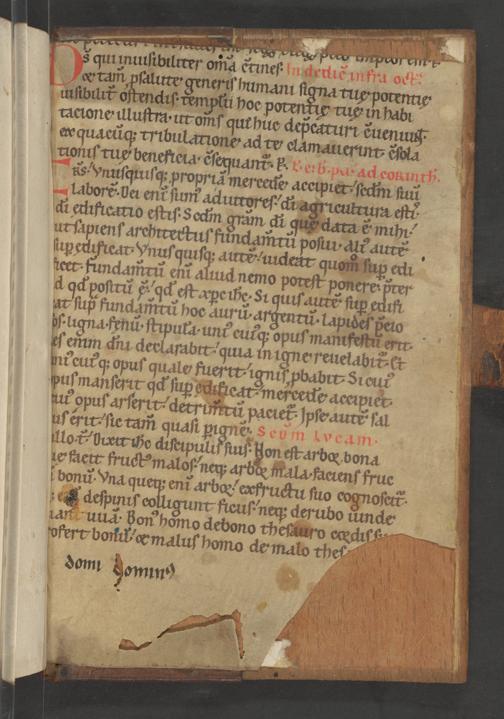 Ds qui inuisibiliter om̄a ↄtines. In dedic̄ infra oct̄.
& tam̄ p̱ salute generis humani signa tuę potentię
uisibilit̄ ostendis. templū hoc potentię tuę in habi
tatione illustra. ut om̄s qui huc dep̄caturi ↄueniunt
ex quacūq; tribulatione ad te clamauerint ↄsola
tionis tuę beneficia ↄsequant̄. P. L. ep̄. b. pa. ad corinth̄.
Fr̄s. Vnusquisq; propriā mercedē accipiet. sec̄dm suū
Laborē. Dei eni sum̄ adiutores. dī agricultura estis
dī edificatio estis. Sec̄dm grām dī quę data ē mihi.
ut sapiens architectus fundam̄tū posui. aliꝰ autē
sup̄ edificat. Vnusquisq; autē uideat quom̄ sup̄ edi
ficet. fundam̄tū eni aliud nemo potest ponere p̄ter
id qd̄ positū ē. qd̄ est xp̄c ih̄c. Si quis autē sup̄ edifi
cat sup̄ fundam̄tū hoc aurū. argentū. Lapides p̄cio
sos. ligna. fenū. stipulā. uniꝰ cuiꝰq; opus manifestū erit.
es enim dn̄i declarabit. quia in igne reuelabit̄. Et
uniꝰ cuiꝰq; opus quale fuerit. ignis p̱babit. Si cuiꝰ
opus manserit qd̄ sup̄ edificat. mercedē accipiet.
cuiꝰ opus arserit. detrim̄tū paciet̄. Ipse autē sal
uus erit. sic tam̄ quasi p̱ ignē. Sc̄dm Lucam.
illo t̄. Dixit ih̄c discipulis suis. Non est arbor bona
que facit fructꝰ malos. neq; arbor mala. faciens fruc
bonū. Vna queq; eni arbor. ex fructu suo cognoscit̄.
de spinis colligunt ficus. neq; de rubo uinde
miant uuā. Bonꝰ homo de bono thesauro cordis su
p̱fert bonū. & malus homo de malo thes
domi dominꝰ